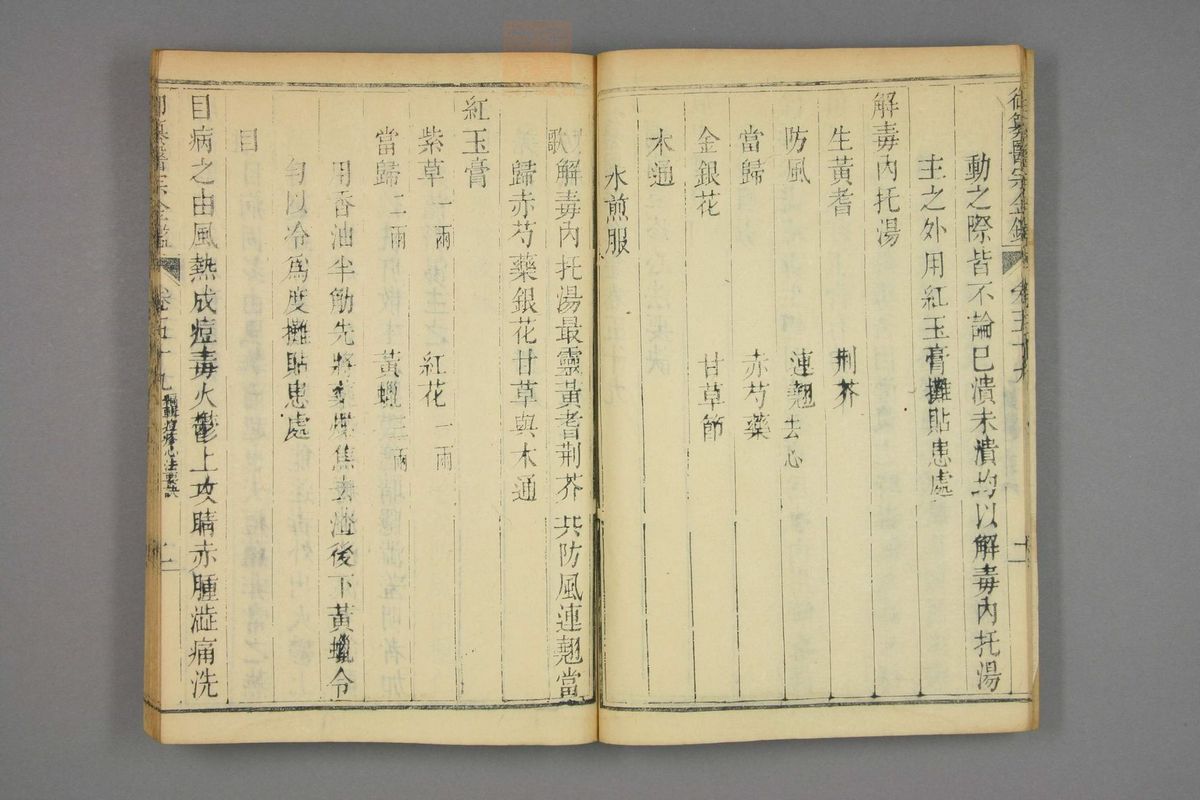 動之際皆不論已潰未潰均以解毒內托湯
主之外用紅玉膏攤貼患處
解毒內托湯
生黃耆 荆芥
防風 連翹去心
當歸 赤芍藥
金銀花 甘草節
木通
水煎服
歌解毒內托湯最靈黃耆荆芥共防風連翹當
歸赤芍藥銀花甘草與木通
紅玉膏
紫草一兩 紅花一兩
當歸二兩 黃蠟三兩
用香油半觔先將藥煠焦去渣後下黃蠟令
勻以冷爲度攤貼患處
目
目病之由風熱成痘毒火鬱上攻睛赤腫澁痛洗
御纂醫宗金鑑 卷五十九 編輯痘疹心法要訣 二